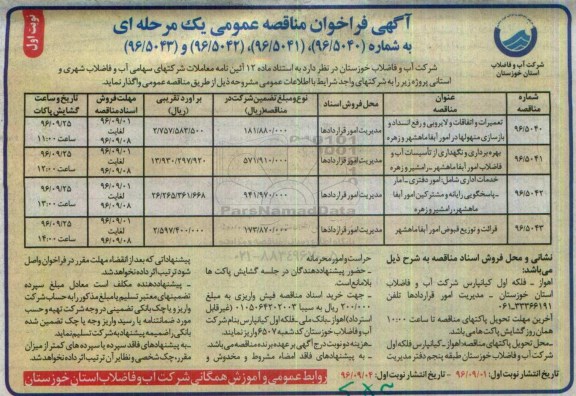 نوبت اول
آگهی فراخوان مناقصه عمومی یک مرحله ای
به شماره (۹۶/۵۰۴۰)، (۹۶/۵۰۴۱)، (۹۶/۵۰۴۲) و (۹۶/۵۰۴۳)
شرکت آب و فاضلاب
استان خوزستان
شرکت آب و فاضلاب خوزستان در نظر دارد به استناد ماده ۱۲ آئین نامه معاملات شرکتهای سهامی آب و فاضلاب شهری و
استانی پروژه زیر را به شرکتهای واجد شرایط با اطلاعات عمومی مشروحه ذیل از طریق مناقصه عمومی واگذار نماید.
شماره مناقصه | عنوان مناقصه | محل فروش اسناد | نوع و مبلغ تضمین شرکت در مناقصه (ریال) | برآورد تقریبی (ریال) | مهلت فروش اسناد مناقصه | تاریخ و ساعت گشایش پاکات
۹۶/۵۰۴۰ | تعمیرات و اتفاقات و لایروبی و رفع انسداد و بازسازی منهولها در امور آبفا ماهشهر و زهره | مدیریت امور قراردادها | ۱۸۱/۸۸۰/۰۰۰ | ۲/۷۵۷/۵۸۳/۵۰۰ | ۹۶/۰۹/۰۱ لغایت ۹۶/۰۹/۰۸ | ۹۶/۰۹/۲۵ ساعت ۱۱:۰۰
۹۶/۵۰۴۱ | بهره برداری و نگهداری از تأسیسات آب و فاضلاب امور آبفا ماهشهر - رامشیر و زهره | مدیریت امور قراردادها | ۵۷۱/۹۱۰/۰۰۰ | ۱۳/۹۳۰/۲۹۷/۹۲۰ | ۹۶/۰۹/۰۱ لغایت ۹۶/۰۹/۰۸ | ۹۶/۰۹/۲۵ ساعت ۱۲:۰۰
۹۶/۵۰۴۲ | خدمات اداری شامل: امور دفتری - آمار - پاسخگویی رایانه و مشترکین امور آبفا ماهشهر، رامشیر و زهره | مدیریت امور قراردادها | ۹۴۱/۹۷۰/۰۰۰ | ۲۶/۲۶۵/۳۶۱/۶۶۸ | ۹۶/۰۹/۰۱ لغایت ۹۶/۰۹/۰۸ | ۹۶/۰۹/۲۵ ساعت ۱۳:۰۰
۹۶/۵۰۴۳ | قرائت و توزیع قبوض امور آبفا ماهشهر | مدیریت امور قراردادها | ۱۷۳/۸۷۰/۰۰۰ | ۲/۵۹۷/۴۰۰/۰۰۰ | ۹۶/۰۹/۰۱ لغایت ۹۶/۰۹/۰۸ | ۹۶/۰۹/۲۵ ساعت ۱۴:۰۰
ParsNamadData
۰۲۱-۸۸۳۴۹۶
نشانی و محل فروش اسناد مناقصه به شرح ذیل
می باشد:
اهواز - فلکه اول کیانپارس شرکت آب و فاضلاب
استان خوزستان - مدیریت امور قراردادها تلفن
آخرین مهلت تحویل پاکتهای مناقصه تا ساعت ۱۰:۰۰
همان روز گشایش پاکت ها می باشد.
-محل تحویل پاکتهای مناقصه: اهواز - کیانپارس فلکه اول
شرکت آب و فاضلاب خوزستان طبقه پنجم دفتر مدیریت
حراست و امور محرمانه
- حضور پیشنهاددهندگان در جلسه گشایش پاکت ها
بلامانع است.
- جهت خرید اسناد مناقصه فیش واریزی به مبلغ
استرداد) اهواز، بانک ملی، فلکه اول کیانپارس بنام شرکت
آب و فاضلاب خوزستان کد شعبه ۶۵۰۷ واریز نمایند.
-هزینه دو نوبت درج آگهی بر عهده برنده مناقصه می باشد.
- به پیشنهادهای فاقد امضاء، مشروط و مخدوش و
پیشنهاداتی که بعد از انقضاء مهلت مقرر در فراخوان واصل
شود ترتیب اثر داده نخواهد شد.
- پیشنهاددهنده مکلف است معادل مبلغ سپرده
تضمینهای معتبر تسلیم یا مبلغ مذکور را به حساب شرکت
واریز و یا چک بانکی تضمینی در وجه شرکت تهیه و حسب
مورد ضمانتنامه یا رسید واریز وجه یا چک تضمین شده
بانکی را ضمیمه پیشنهاد به شرکت تسلیم نماید.
-به پیشنهادهای فاقد سپرده یا سپرده های کمتر از میزان
مقرر، چک شخصی و نظایر آن ترتیب اثر داده نخواهد شد.
تاریخ انتشار نوبت اول: ۹۶/۰۹/۰۱ - تاریخ انتشار نوبت اول: ۹۶/۰۹/۰۴
روابط عمومی و آموزش همگانی شرکت آب و فاضلاب استان خوزستان